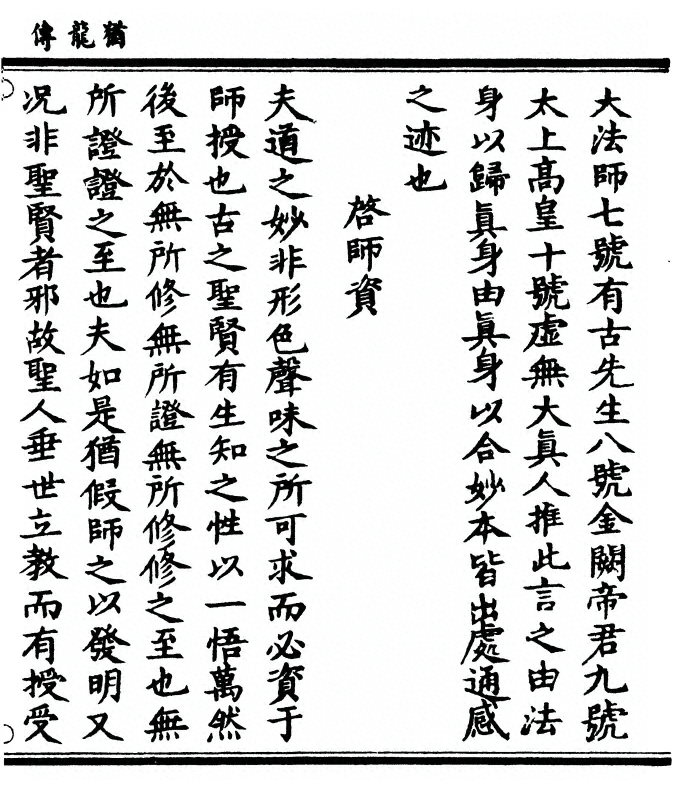 猶龍傳
大法師七號有古先生八號金闕帝君九號
太上高皇十號虛無大真人推此言之由法
身以歸眞身由眞身以合妙本皆出處通感
之迹也
啓師資
夫道之妙非形色聲味之所可求而必資于
師授也古之聖賢有生知之性以一悟萬然
後至於無所修無所證無所修修之至也無
所證證之至也夫如是猶假師之以發明又
况非聖賢者邪故聖人垂世立教而有授受